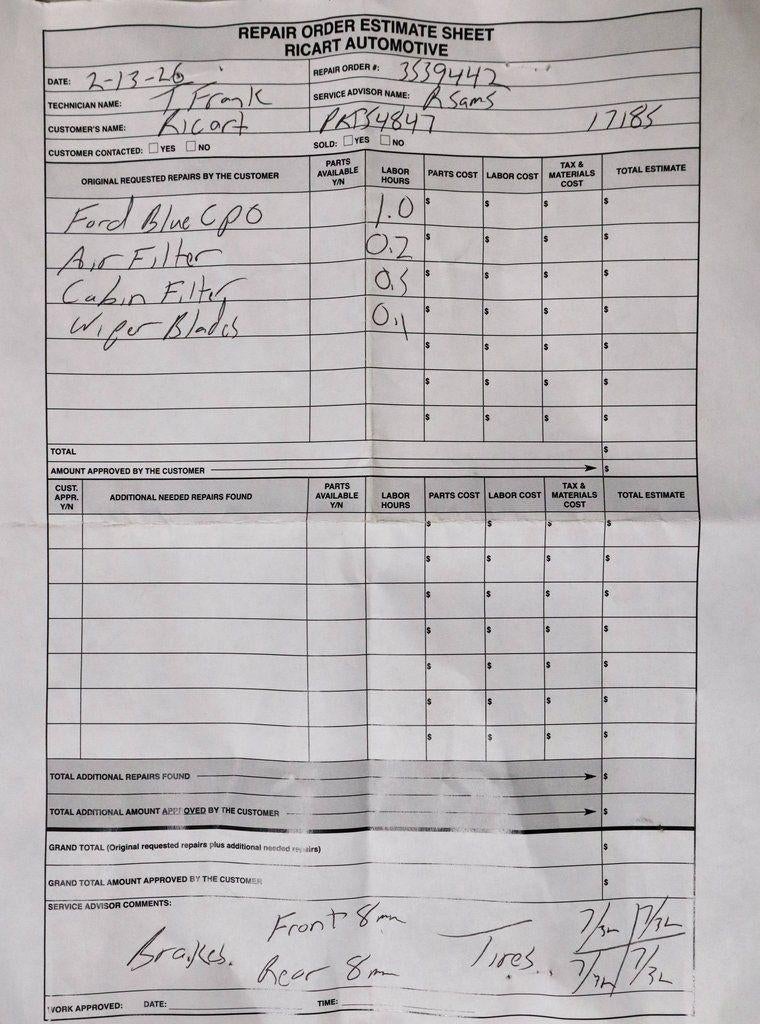 REPAIR ORDER ESTIMATE SHEET
RICART AUTOMOTIVE
DATE: 2-13-26 REPAIR ORDER #: 3539442
TECHNICIAN NAME: T. Frank SERVICE ADVISOR NAME: R Sams
CUSTOMER'S NAME: Ricart PRT54847 17185
CUSTOMER CONTACTED: ☐ YES ☐ NO SOLD: ☐ YES ☐ NO
ORIGINAL REQUESTED REPAIRS BY THE CUSTOMER PARTS AVAILABLE Y/N LABOR HOURS PARTS COST LABOR COST TAX & MATERIALS COST TOTAL ESTIMATE
Ford Blue CPO 1.0 $ $ $ $
Air Filter 0.2 $ $ $ $
Cabin Filter 0.5 $ $ $ $
Wiper Blades 0.1 $ $ $ $
$ $ $ $
$ $ $ $
$ $ $ $
TOTAL $
AMOUNT APPROVED BY THE CUSTOMER $
CUST. APPR. Y/N ADDITIONAL NEEDED REPAIRS FOUND PARTS AVAILABLE Y/N LABOR HOURS PARTS COST LABOR COST TAX & MATERIALS COST TOTAL ESTIMATE
$ $ $ $
$ $ $ $
$ $ $ $
$ $ $ $
$ $ $ $
$ $ $ $
$ $ $ $
TOTAL ADDITIONAL REPAIRS FOUND $
TOTAL ADDITIONAL AMOUNT APPROVED BY THE CUSTOMER $
GRAND TOTAL (Original requested repairs plus additional needed repairs) $
GRAND TOTAL AMOUNT APPROVED BY THE CUSTOMER $
SERVICE ADVISOR COMMENTS:
Brakes Front 8mm Tires 7/32 7/32
Rear 8mm 7/32 7/32
WORK APPROVED: DATE: TIME: